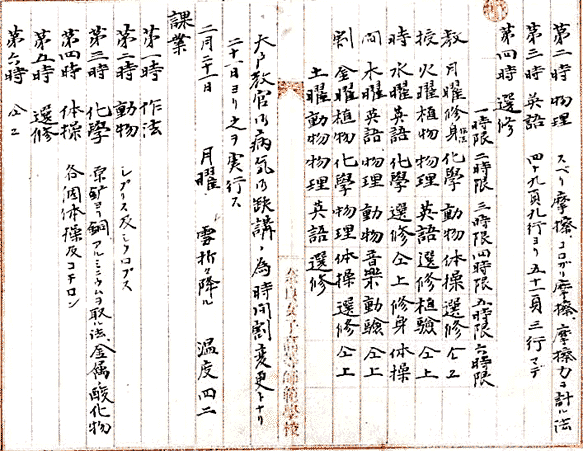 第二時 物理 スベリ摩擦、コロガリ摩擦 摩擦力ヲ計ル法
第三時 英語 四十九頁九行ヨリ五十一頁三行マデ
第四時 選修
一時限 二時限 三時限 四時限 五時限 六時限
教 月曜 修身 化學 動物 体操 選修 仝上
授 火曜 植物 物理 英語 選修 植驗 仝上
時 水曜 英語 化學 選修 仝上 修身 体操
間 木曜 英語 物理 動物 音樂 動驗 仝上
割 金曜 植物 化學 物理 体操 選修 仝上
土曜 動物 物理 英語 選修
大戸教官御病気御欠講ノ為時間割変更トナリ
二十八日ヨリ之ヲ実行ス
二月二十一日 月曜 雪折々降ル 温度 四二
課業
第一時 作法
第二時 動物 レプリス及シクロプス
第三時 化學 原鉱ヨリ銅アルミニウムヲ取ル法 金属酸化物
第四時 体操 各個体操及コチロン
第五時 選修
第六時 仝上
奈良女子高等師範學校